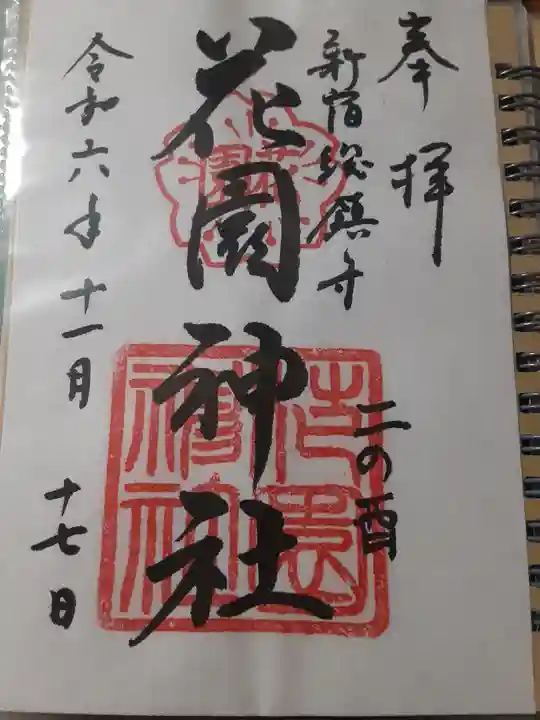 奉拝
新宿総鎮守
二の酉
花園神社
令和六年十一月
十七日